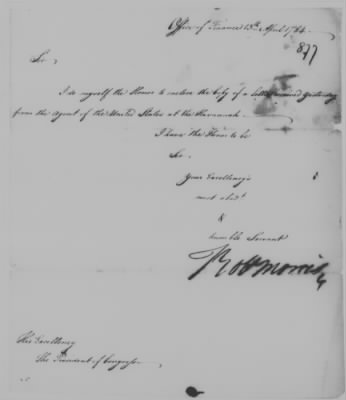 Office of Finance 13th April 1784.
877
Sir
I do myself the Honor to enclose the Copy of a Letter received yesterday
from the Agent of the United States at the Havannah.
I have the Honor to be
Sir
Your Excellency's
most obedt.
&
humble Servant
RobMorris
His Excellency
The President of Congress